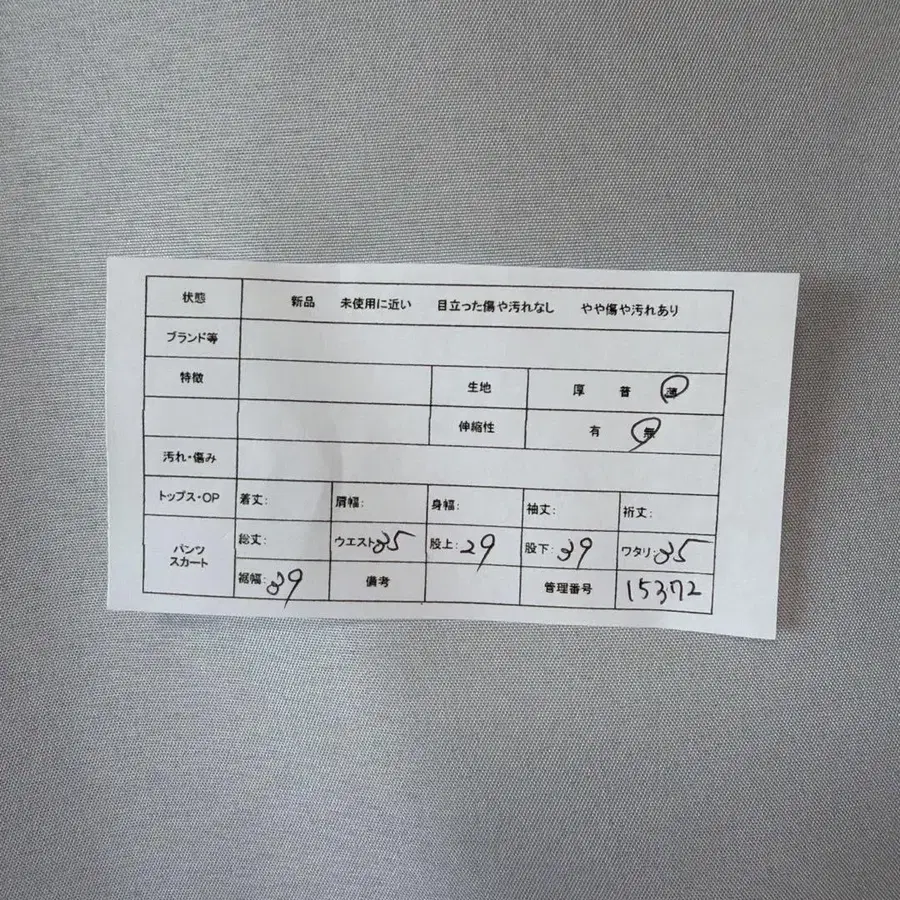 状態 新品 未使用に近い 目立った傷や汚れなし やや傷や汚れあり
ブランド等
特徴 生地 厚 普 薄
伸縮性 有 無
汚れ・傷み
トップス・OP 着丈: 肩幅: 身幅: 袖丈: 裄丈:
パンツ
スカート
総丈: ウエスト:35 股上:29 股下:39 ワタリ:35
裾幅:39 備考 管理番号 15372